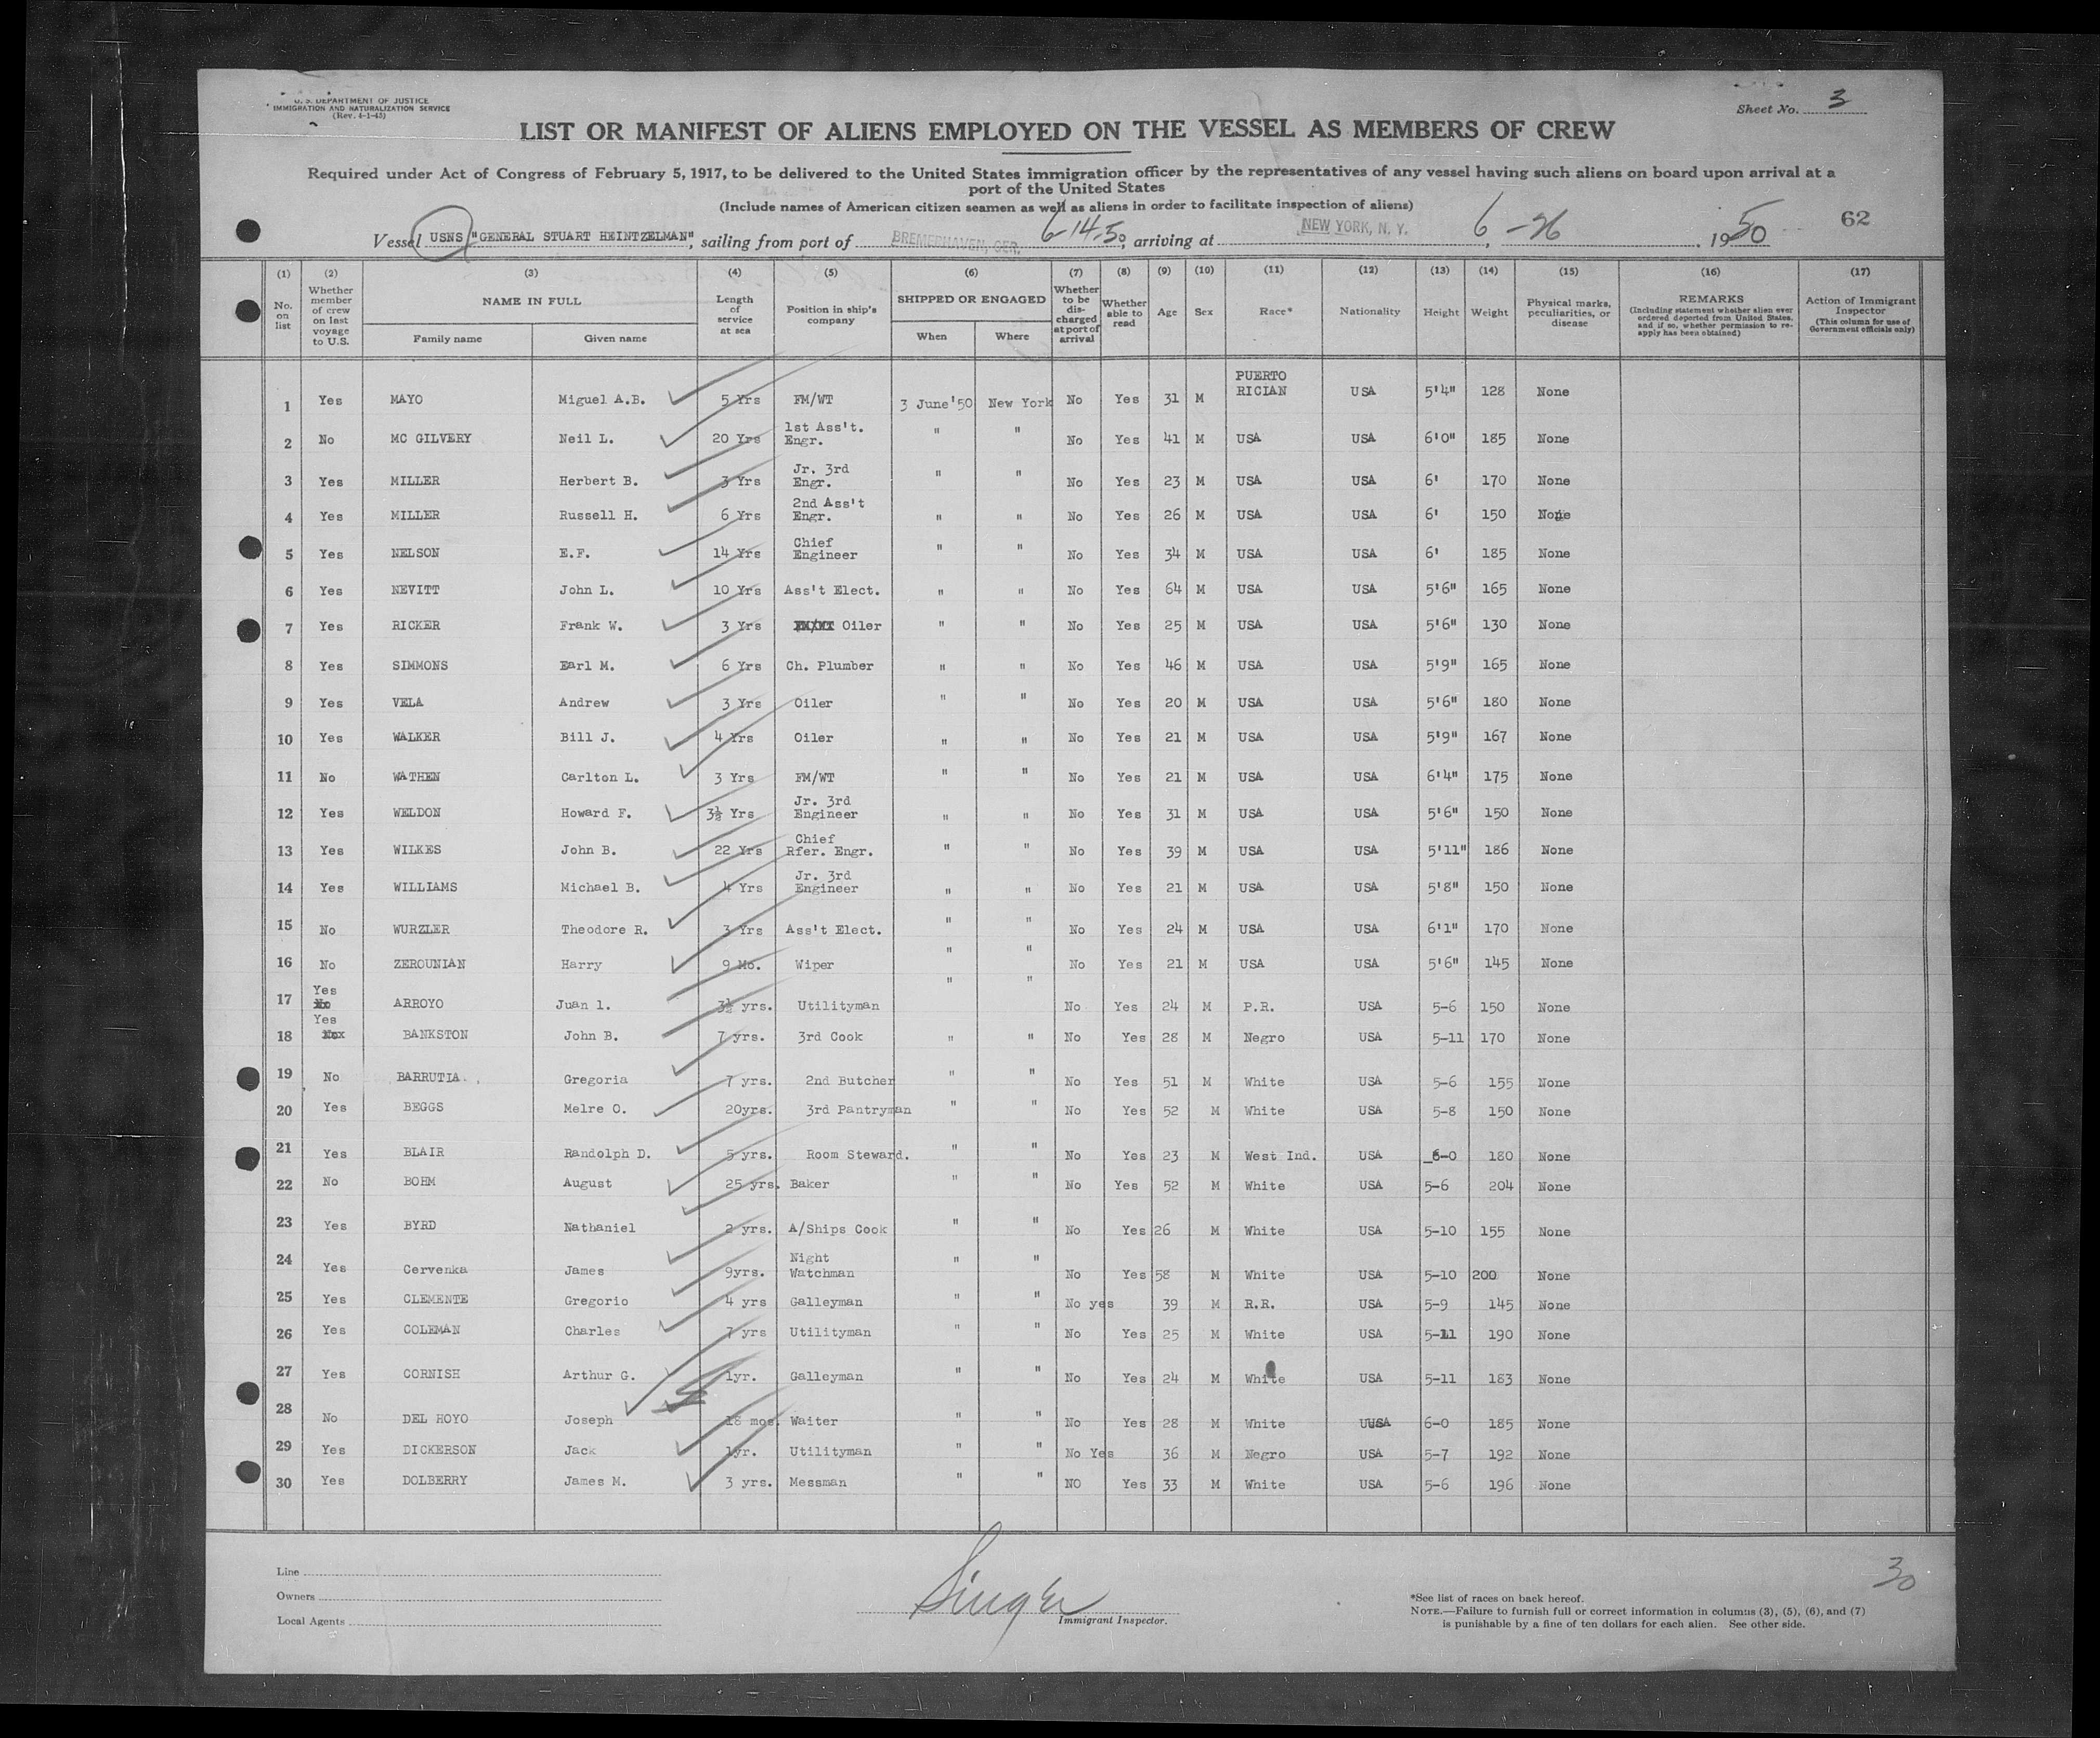 U. S. DEPARTMENT OF JUSTICE
IMMIGRATION AND NATURALIZATION SERVICE
(Rev. 4-1-45)
Sheet No. 3
LIST OR MANIFEST OF ALIENS EMPLOYED ON THE VESSEL AS MEMBERS OF CREW
Required under Act of Congress of February 5, 1917, to be delivered to the United States immigration officer by the representatives of any vessel having such aliens on board upon arrival at a
port of the United States
(Include names of American citizen seamen as well as aliens in order to facilitate inspection of aliens)
Vessel USNS "GENERAL STUART HEINTZELMAN", sailing from port of BREMERHAVEN, GER. 6-14-50, arriving at NEW YORK, N. Y. 6-26, 1950
62
(1) No. on list
(2) Whether member of crew on last voyage to U.S.
(3) NAME IN FULL
Family name Given name
(4) Length of service at sea
(5) Position in ship's company
(6) SHIPPED OR ENGAGED
When Where
(7) Whether to be discharged at port of arrival
(8) Whether able to read
(9) Age
(10) Sex
(11) Race*
(12) Nationality
(13) Height
(14) Weight
(15) Physical marks, peculiarities, or disease
(16) REMARKS (Including statement whether alien ever ordered deported from United States, and if so, whether permission to reapply has been obtained)
(17) Action of Immigrant Inspector (This column for use of Government officials only)
1 Yes MAYO Miguel A.B. 5 Yrs FM/WT 3 June'50 New York No Yes 31 M PUERTO RICIAN USA 5'4" 128 None
2 No MC GILVERY Neil L. 20 Yrs 1st Ass't. Engr. " " No Yes 41 M USA USA 6'0" 185 None
3 Yes MILLER Herbert B. 3 Yrs Jr. 3rd Engr. " " No Yes 23 M USA USA 6' 170 None
4 Yes MILLER Russell H. 6 Yrs 2nd Ass't Engr. " " No Yes 26 M USA USA 6' 150 None
5 Yes NELSON E.F. 14 Yrs Chief Engineer " " No Yes 34 M USA USA 6' 185 None
6 Yes NEVITT John L. 10 Yrs Ass't Elect. " " No Yes 64 M USA USA 5'6" 165 None
7 Yes RICKER Frank W. 3 Yrs Oiler " " No Yes 25 M USA USA 5'6" 130 None
8 Yes SIMMONS Earl M. 6 Yrs Ch. Plumber " " No Yes 46 M USA USA 5'9" 165 None
9 Yes VELA Andrew 3 Yrs Oiler " " No Yes 20 M USA USA 5'6" 180 None
10 Yes WALKER Bill J. 4 Yrs Oiler " " No Yes 21 M USA USA 5'9" 167 None
11 No WATHEN Carlton L. 3 Yrs FM/WT " " No Yes 21 M USA USA 6'4" 175 None
12 Yes WELDON Howard F. 3½ Yrs Jr. 3rd Engineer " " No Yes 31 M USA USA 5'6" 150 None
13 Yes WILKES John B. 22 Yrs Chief Rfer. Engr. " " No Yes 39 M USA USA 5'11" 186 None
14 Yes WILLIAMS Michael B. 4 Yrs Jr. 3rd Engineer " " No Yes 21 M USA USA 5'8" 150 None
15 No WURZLER Theodore R. 3 Yrs Ass't Elect. " " No Yes 24 M USA USA 6'1" 170 None
16 No ZEROUNIAN Harry 9 Mo. Wiper " " No Yes 21 M USA USA 5'6" 145 None
17 Yes No ARROYO Juan l. 3½ yrs. Utilityman " " No Yes 24 M P.R. USA 5-6 150 None
18 Yes BANKSTON John B. 7 yrs. 3rd Cook " " No Yes 28 M Negro USA 5-11 170 None
19 No BARRUTIA. Gregoria 7 yrs. 2nd Butcher " " No Yes 51 M White USA 5-6 155 None
20 Yes BEGGS Melre O. 20yrs. 3rd Pantryman " " No Yes 52 M White USA 5-8 150 None
21 Yes BLAIR Randolph D. 5 yrs. Room Steward. " " No Yes 23 M West Ind. USA 6-0 180 None
22 No BOHM August 25 yrs. Baker " " No Yes 52 M White USA 5-6 204 None
23 Yes BYRD Nathaniel 2 yrs. A/Ships Cook " " No Yes 26 M White USA 5-10 155 None
24 Yes Cervenka James 9yrs. Night Watchman " " No Yes 58 M White USA 5-10 200 None
25 Yes CLEMENTE Gregorio 4 yrs Galleyman " " No yes 39 M R.R. USA 5-9 145 None
26 Yes COLEMAN Charles 7 yrs Utilityman " " No Yes 25 M White USA 5-11 190 None
27 Yes CORNISH Arthur G. 1yr. Galleyman " " No Yes 24 M White USA 5-11 183 None
28 No DEL HOYO Joseph 18 mos. Waiter " " No Yes 28 M White UUSA 6-0 185 None
29 Yes DICKERSON Jack 1yr. Utilityman " " No Yes 36 M Negro USA 5-7 192 None
30 Yes DOLBERRY James M. 3 yrs. Messman " " NO Yes 33 M White USA 5-6 196 None
Line
Owners
Local Agents
Singer
Immigrant Inspector.
30
*See list of races on back hereof.
NOTE.—Failure to furnish full or correct information in columns (3), (5), (6), and (7)
is punishable by a fine of ten dollars for each alien. See other side.